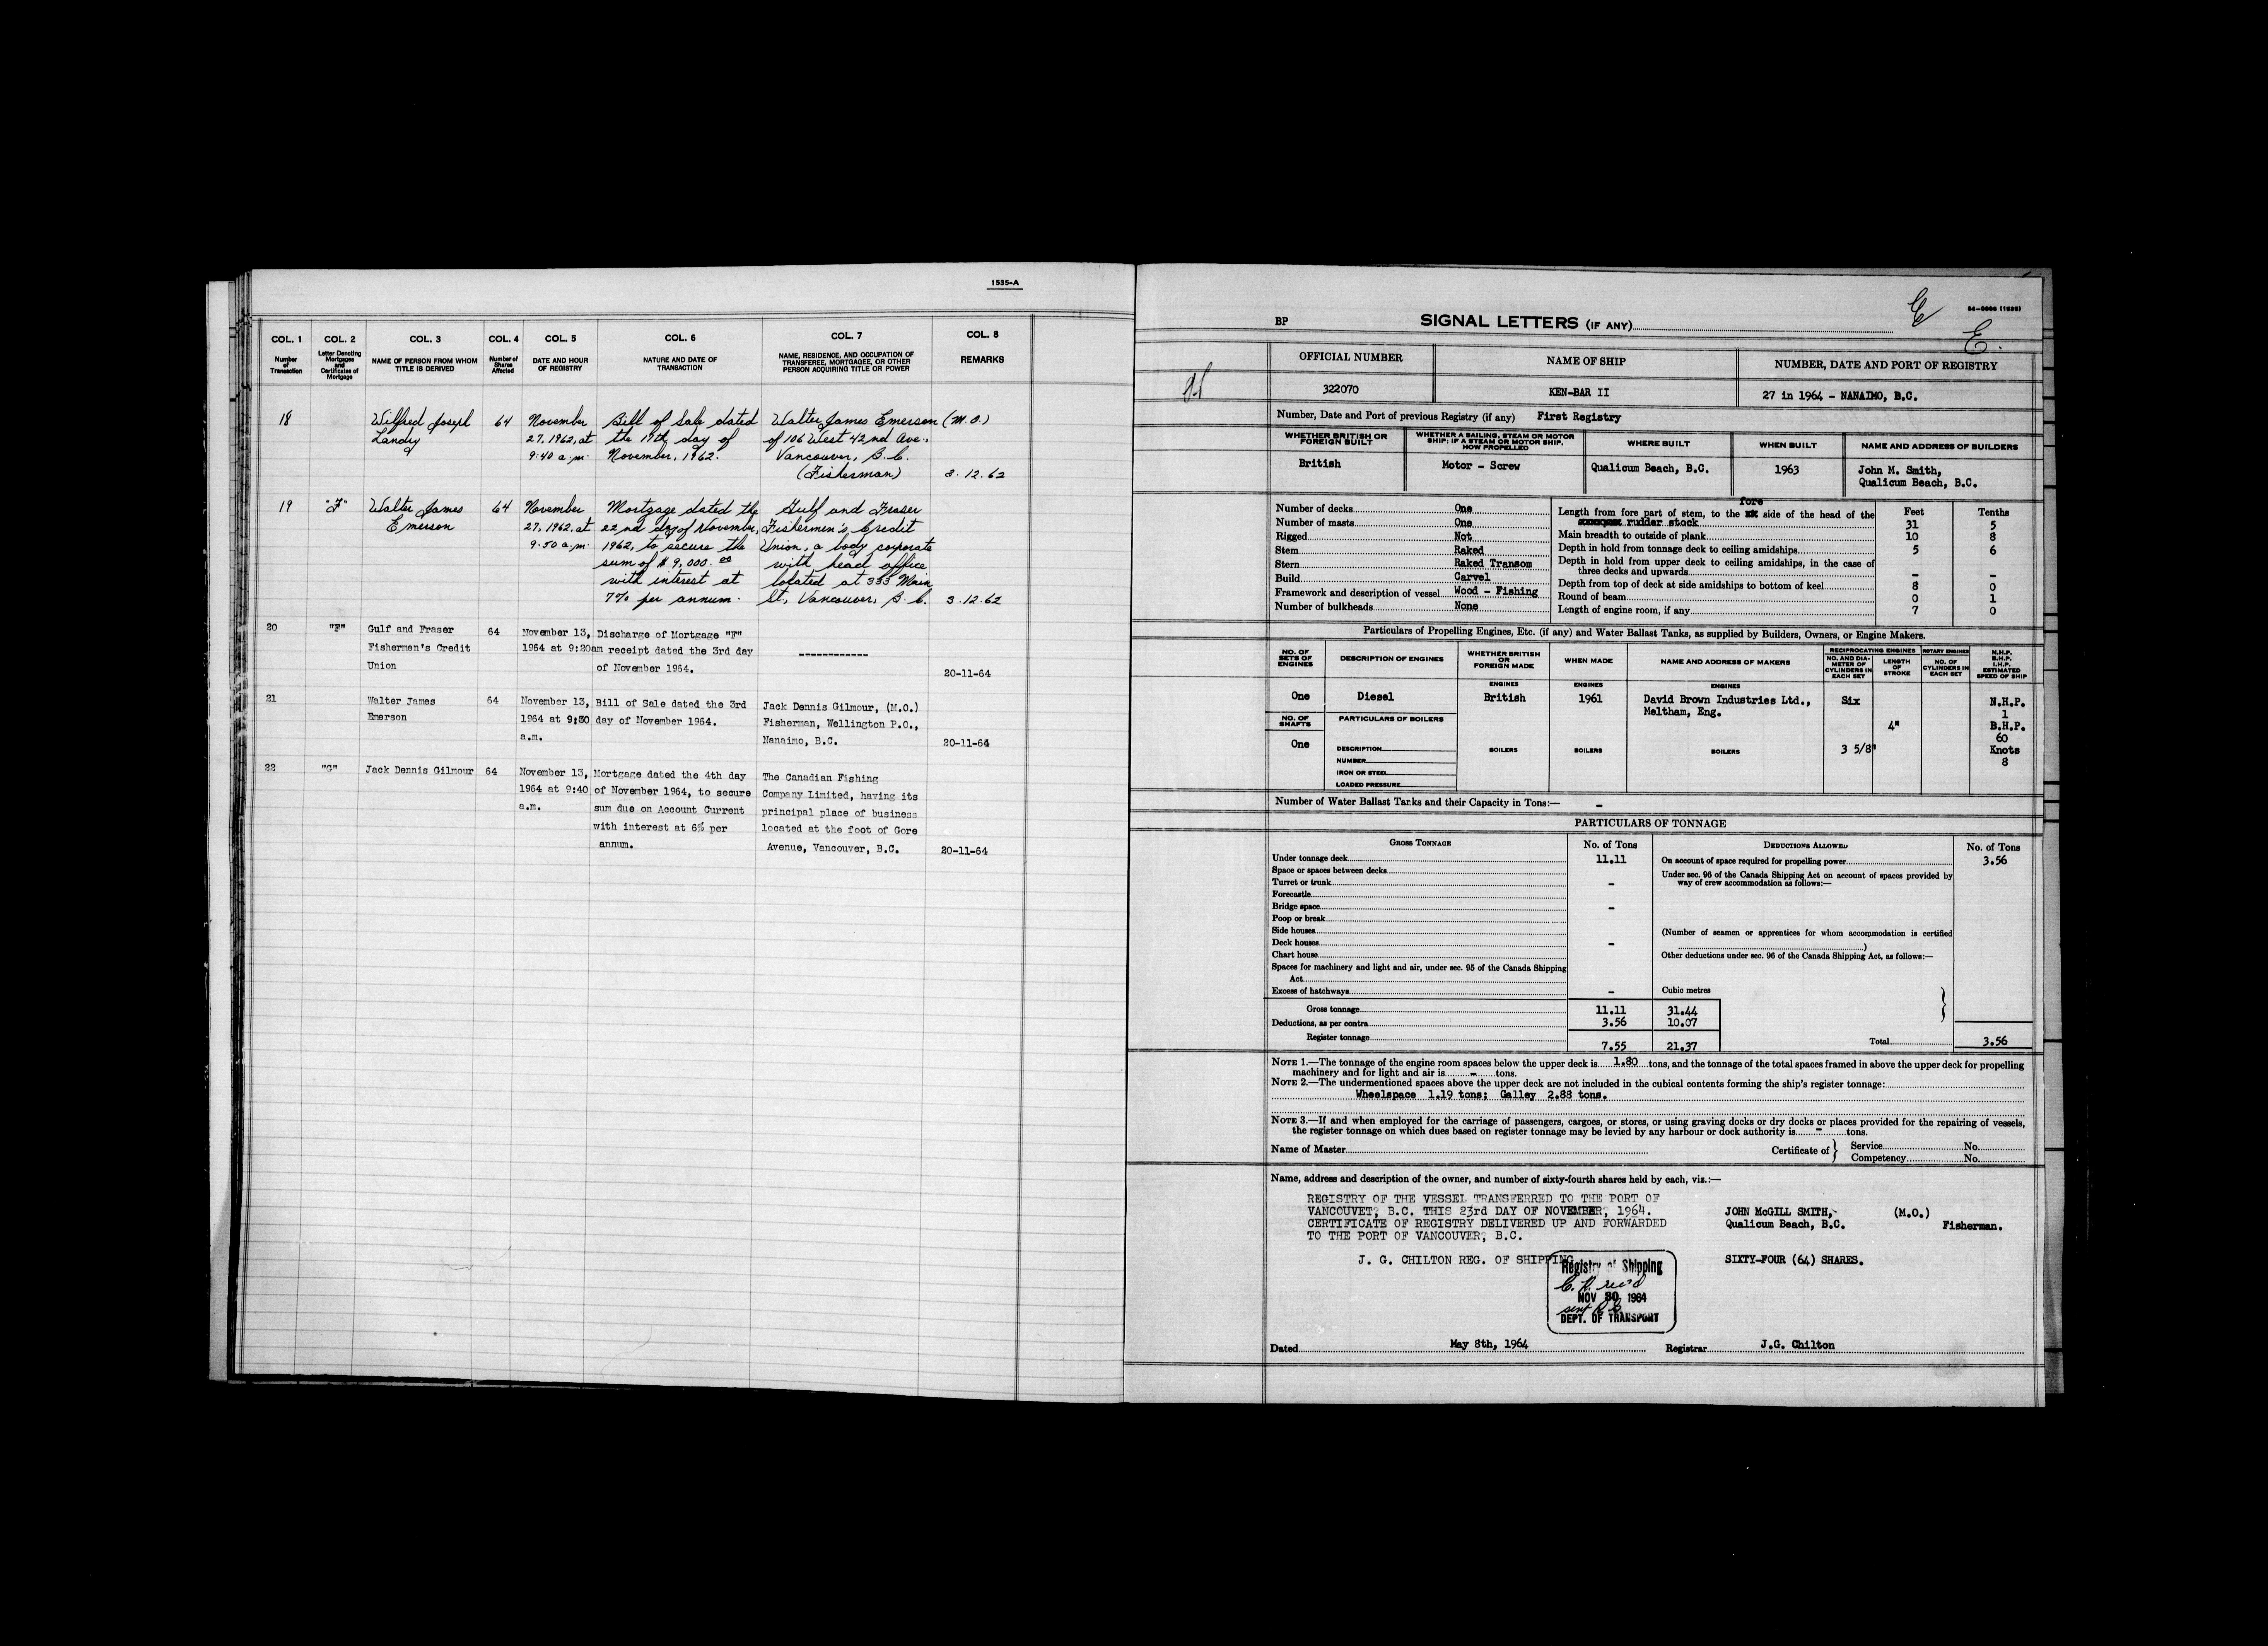 1535-A
COL. 1
Number
of
Transaction
COL. 2
Letter Denoting
Mortgages
and
Certificates of
Mortgage
COL. 3
NAME OF PERSON FROM WHOM
TITLE IS DERIVED
COL. 4
Number of
Shares
Affected
COL. 5
DATE AND HOUR
OF REGISTRY
COL. 6
NATURE AND DATE OF
TRANSACTION
COL. 7
NAME, RESIDENCE, AND OCCUPATION OF
TRANSFEREE, MORTGAGEE, OR OTHER
PERSON ACQUIRING TITLE OR POWER
COL. 8
REMARKS
18
Wilfred Joseph
Landry
64
November
27, 1962, at
9.40 a.m.
Bill of Sale dated
the 19th day of
November, 1962.
Walter James Emerson (M.O.)
of 106 West 42nd Ave.,
Vancouver, B.C.
(Fisherman)
3.12.62
19
"F"
Walter James
Emerson
64
November
27, 1962, at
9.50 a.m.
Mortgage dated the
22nd day of November,
1962, to secure the
sum of $9,000.00
with interest at
7% per annum.
Gulf and Fraser
Fishermen's Credit
Union, a body corporate
with head office
located at 335 Main
St, Vancouver, B.C.
3.12.62
20
"F"
Gulf and Fraser
Fishermen's Credit
Union
64
November 13,
1964 at 9:20am
Discharge of Mortgage "F"
receipt dated the 3rd day
of November 1964.
------------
20-11-64
21
Walter James
Emerson
64
November 13,
1964 at 9:30
a.m.
Bill of Sale dated the 3rd
day of November 1964.
Jack Dennis Gilmour, (M.O.)
Fisherman, Wellington P.O.,
Nanaimo, B.C.
20-11-64
22
"G"
Jack Dennis Gilmour
64
November 13,
1964 at 9:40
a.m.
Mortgage dated the 4th day
of November 1964, to secure
sum due on Account Current
with interest at 6% per
annum.
The Canadian Fishing
Company Limited, having its
principal place of business
located at the foot of Gore
Avenue, Vancouver, B.C.
20-11-64
BP
SIGNAL LETTERS (IF ANY)
E.
OFFICIAL NUMBER
322070
NAME OF SHIP
KEN-BAR II
NUMBER, DATE AND PORT OF REGISTRY
27 in 1964 - NANAIMO, B.C.
Number, Date and Port of previous Registry (if any) First Registry
WHETHER BRITISH OR
FOREIGN BUILT
British
WHETHER A SAILING, STEAM OR MOTOR
SHIP; IF A STEAM OR MOTOR SHIP,
HOW PROPELLED
Motor - Screw
WHERE BUILT
Qualicum Beach, B.C.
WHEN BUILT
1963
NAME AND ADDRESS OF BUILDERS
John M. Smith,
Qualicum Beach, B.C.
Number of decks One
Number of masts One
Rigged Not
Stem Raked
Stern Raked Transom
Build Carvel
Framework and description of vessel Wood - Fishing
Number of bulkheads None
Feet Tenths
fore
Length from fore part of stem, to the side of the head of the
rudder stock 31 5
Main breadth to outside of plank 10 8
Depth in hold from tonnage deck to ceiling amidships 5 6
Depth in hold from upper deck to ceiling amidships, in the case of
three decks and upwards - -
Depth from top of deck at side amidships to bottom of keel 8 0
Round of beam 0 1
Length of engine room, if any 7 0
Particulars of Propelling Engines, Etc. (if any) and Water Ballast Tanks, as supplied by Builders, Owners, or Engine Makers.
NO. OF
SETS OF
ENGINES
One
NO. OF
SHAFTS
One
DESCRIPTION OF ENGINES
Diesel
PARTICULARS OF BOILERS
DESCRIPTION
NUMBER
IRON OR STEEL
LOADED PRESSURE
WHETHER BRITISH
OR
FOREIGN MADE
ENGINES
British
BOILERS
WHEN MADE
ENGINES
1961
BOILERS
NAME AND ADDRESS OF MAKERS
ENGINES
David Brown Industries Ltd.,
Meltham, Eng.
BOILERS
RECIPROCATING ENGINES
NO. AND DIA-
METER OF
CYLINDERS IN
EACH SET
Six
3 5/8"
LENGTH
OF
STROKE
4"
ROTARY ENGINES
NO. OF
CYLINDERS IN
EACH SET
N.H.P.
B.H.P.
I.H.P.
ESTIMATED
SPEED OF SHIP
N.H.P.
1
B.H.P.
60
Knots
8
Number of Water Ballast Tanks and their Capacity in Tons:— -
PARTICULARS OF TONNAGE
GROSS TONNAGE No. of Tons
Under tonnage deck 11.11
Space or spaces between decks
Turret or trunk -
Forecastle
Bridge space -
Poop or break
Side houses
Deck houses -
Chart house
Spaces for machinery and light and air, under sec. 95 of the Canada Shipping
Act
Excess of hatchways - Cubic metres
Gross tonnage 11.11 31.44
Deductions, as per contra 3.56 10.07
Register tonnage 7.55 21.37
DEDUCTIONS ALLOWED No. of Tons
On account of space required for propelling power 3.56
Under sec. 96 of the Canada Shipping Act on account of spaces provided by
way of crew accommodation as follows:—
(Number of seamen or apprentices for whom accommodation is certified
)
Other deductions under sec. 96 of the Canada Shipping Act, as follows:—
Total 3.56
NOTE 1.—The tonnage of the engine room spaces below the upper deck is 1.80 tons, and the tonnage of the total spaces framed in above the upper deck for propelling
machinery and for light and air is - tons.
NOTE 2.—The undermentioned spaces above the upper deck are not included in the cubical contents forming the ship's register tonnage:
Wheelspace 1.19 tons; Galley 2.88 tons.
NOTE 3.—If and when employed for the carriage of passengers, cargoes, or stores, or using graving docks or dry docks or places provided for the repairing of vessels,
the register tonnage on which dues based on register tonnage may be levied by any harbour or dock authority is - tons.
Name of Master
Certificate of
Service No.
Competency No.
Name, address and description of the owner, and number of sixty-fourth shares held by each, viz.:—
REGISTRY OF THE VESSEL TRANSFERRED TO THE PORT OF
VANCOUVET, B.C. THIS 23rd DAY OF NOVEMBER, 1964.
CERTIFICATE OF REGISTRY DELIVERED UP AND FORWARDED
TO THE PORT OF VANCOUVER, B.C.
J. G. CHILTON REG. OF SHIPPING
JOHN McGILL SMITH, (M.O.)
Qualicum Beach, B.C. Fisherman.
SIXTY-FOUR (64) SHARES.
Registry of Shipping
C.R. rec'd
NOV 30 1964
DEPT. OF TRANSPORT
Dated May 8th, 1964
Registrar J.G. Chilton